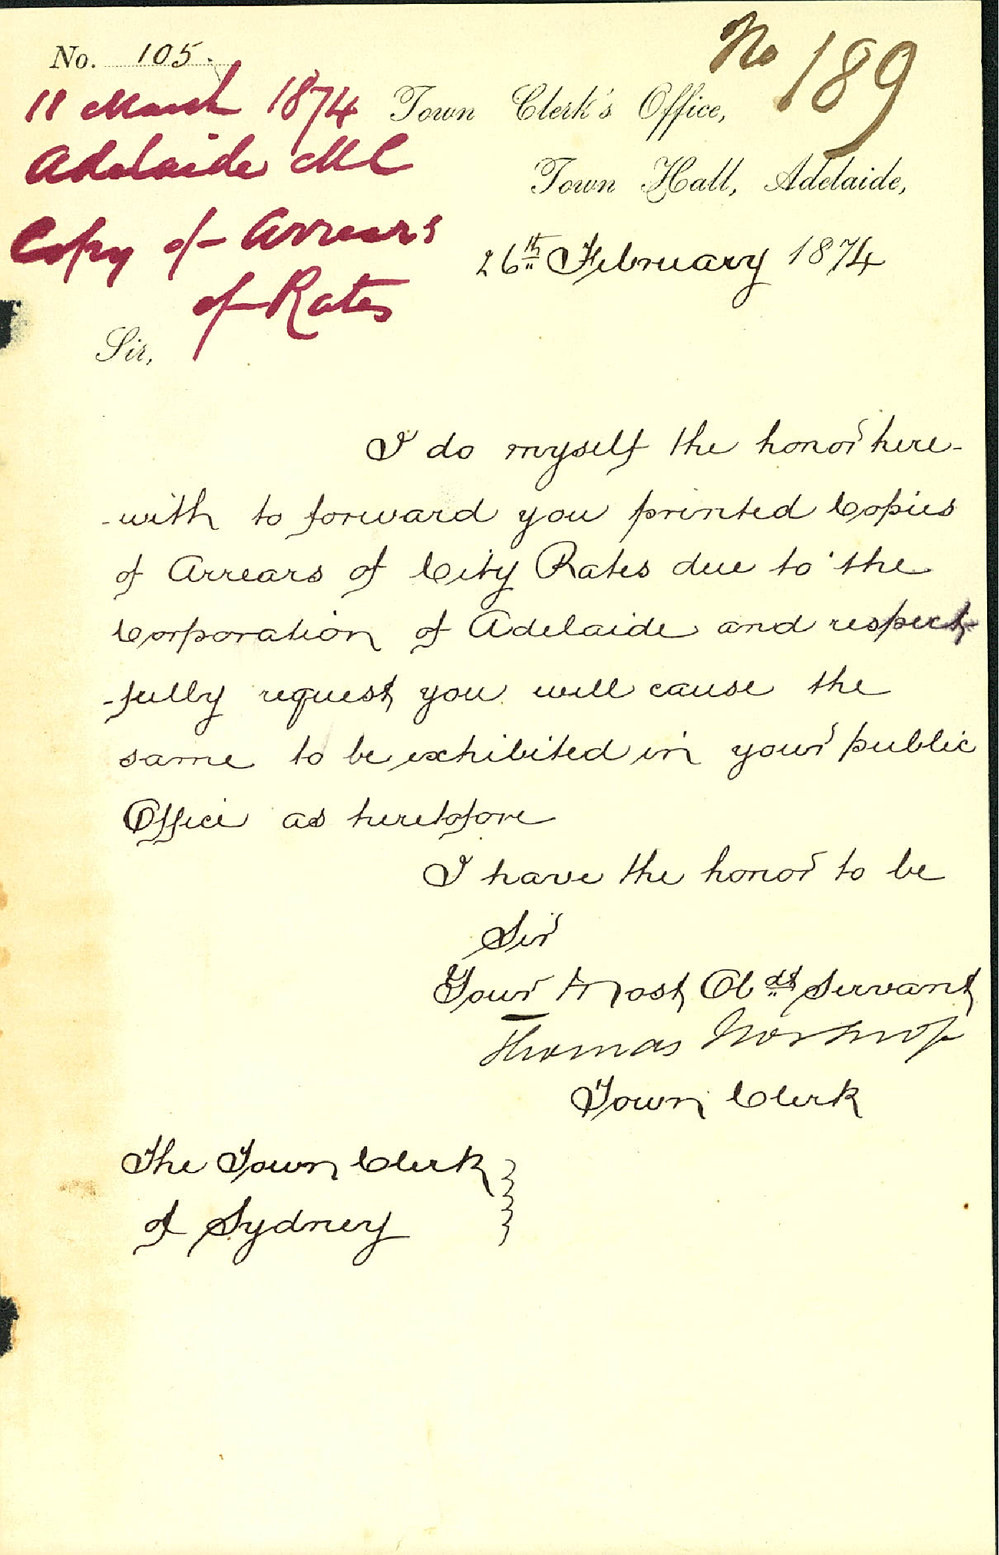 No. 105.
No 189
11 March 1874
Adelaide MC
Copy of Arrears
of Rates
Town Clerk's Office,
Town Hall, Adelaide,
26th February 1874
Sir,
I do myself the honor here-
-with to forward you printed Copies
of Arrears of City Rates due to the
Corporation of Adelaide and respect
-fully request you will cause the
same to be exhibited in your public
Office as heretofore
I have the honor to be
Sir
Your Most Obdt Servant
Thomas Worsnop
Town Clerk
The Town Clerk
of Sydney